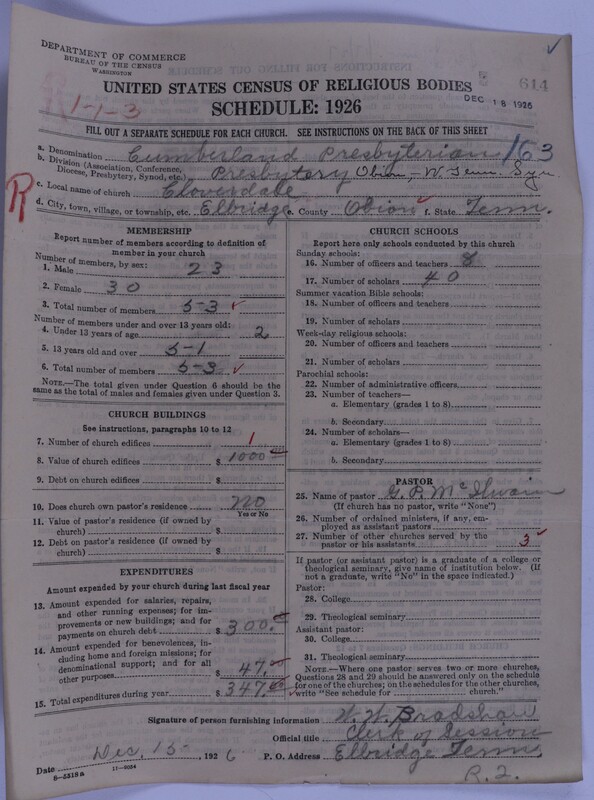 DEPARTMENT OF COMMERCE
BUREAU OF THE CENSUS
WASHINGTON
UNITED STATES CENSUS OF RELIGIOUS BODIES
SCHEDULE: 1926
DEC 18 1926
614
1-1-3
FILL OUT A SEPARATE SCHEDULE FOR EACH CHURCH. SEE INSTRUCTIONS ON THE BACK OF THIS SHEET
a. Denomination Cumberland Presbyterian 163
b. Division (Association, Conference, Diocese, Presbytery, Synod, etc.) Presbytery Obion - W. Tenn. Syn.
R
c. Local name of church Cloverdale
d. City, town, village, or township, etc. Elbridge e. County Obion f. State Tenn.
MEMBERSHIP
Report number of members according to definition of
member in your church
Number of members, by sex:
1. Male 23
2. Female 30
3. Total number of members 53
Number of members under and over 13 years old:
4. Under 13 years of age 2
5. 13 years old and over 51
6. Total number of members 53
NOTE.—The total given under Question 6 should be the
same as the total of males and females given under Question 3.
CHURCH BUILDINGS
See instructions, paragraphs 10 to 12
7. Number of church edifices 1
8. Value of church edifices $ 1000.00
9. Debt on church edifices $
10. Does church own pastor's residence? No
Yes or No
11. Value of pastor's residence (if owned by
church) $
12. Debt on pastor's residence (if owned by
church) $
EXPENDITURES
Amount expended by your church during last fiscal year
13. Amount expended for salaries, repairs,
and other running expenses; for im-
provements or new buildings; and for
payments on church debt $ 300.00
14. Amount expended for benevolences, in-
cluding home and foreign missions; for
denominational support; and for all
other purposes $ 47.00
15. Total expenditures during year $ 347.00
CHURCH SCHOOLS
Report here only schools conducted by this church
Sunday schools:
16. Number of officers and teachers 8
17. Number of scholars 40
Summer vacation Bible schools:
18. Number of officers and teachers
19. Number of scholars
Week-day religious schools:
20. Number of officers and teachers
21. Number of scholars
Parochial schools:
22. Number of administrative officers
23. Number of teachers—
a. Elementary (grades 1 to 8)
b. Secondary
24. Number of scholars—
a. Elementary (grades 1 to 8)
b. Secondary
PASTOR
25. Name of pastor G. P. McIlwain
(If church has no pastor, write "None")
26. Number of ordained ministers, if any, em-
ployed as assistant pastors
27. Number of other churches served by the
pastor or his assistants 3
If pastor (or assistant pastor) is a graduate of a college or
theological seminary, give name of institution below. (If
not a graduate, write "No" in the space indicated.)
Pastor:
28. College
29. Theological seminary
Assistant pastor:
30. College
31. Theological seminary
NOTE.—Where one pastor serves two or more churches,
Questions 28 and 29 should be answered only on the schedule
for one of the churches; on the schedules for the other churches,
write "See schedule for church."
Signature of person furnishing information W. W. Bradshaw
Official title Clerk of Session
Date Dec. 15 1926 P. O. Address Elbridge Tenn.
8-5318a 11-9034
R. 2.